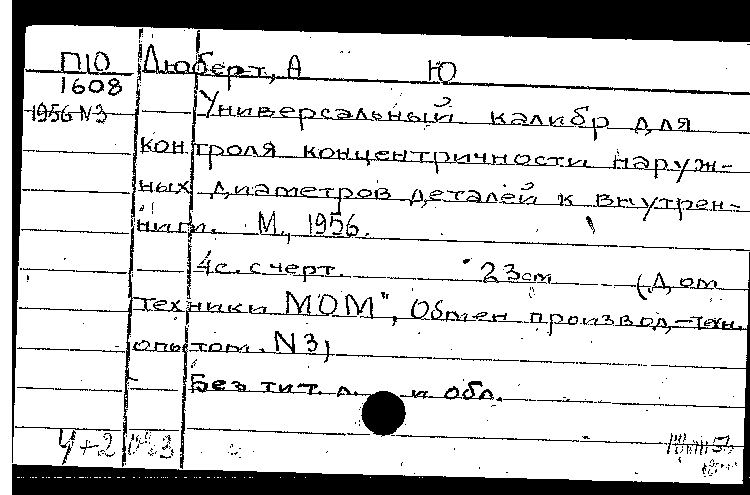 П10 Дюберт, А Ю
1608
1956 N3 Универсальный калибр для
контроля концентричности наруж-
ных диаметров деталей к внутрен-
ним. М., 1956.
4с. с черт. 23cm (Дом
техники МОМ", Обмен производ.-техн.
опытом. N3)
Без тит. л. и обл.
4+2 3